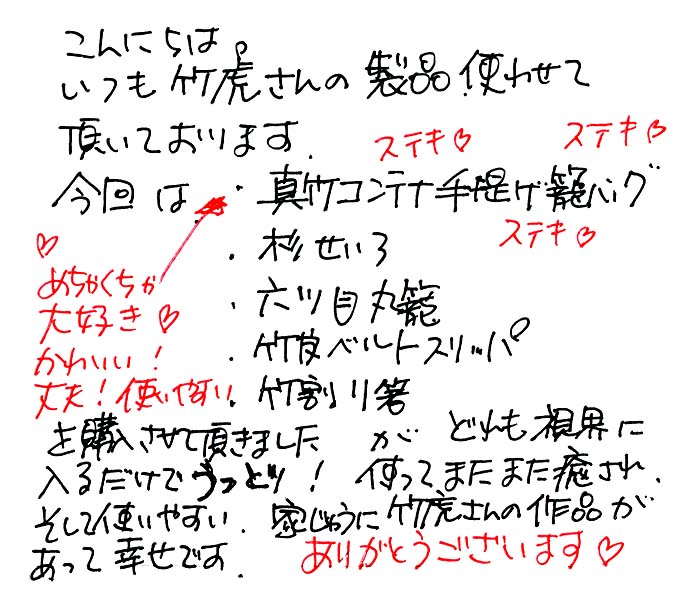 こんにちは。
いつも竹虎さんの製品使わせて
頂いております.
ステキ♡ ステキ♡
今回は ・真竹コンテナ手提げ籠バッグ
ステキ♡
・杉せいろ
・六ツ目丸籠
・竹皮ベルトスリッパ
・竹割り箸
♡
めちゃくちゃ
大好き♡
かわいい!
丈夫!使いやすい
を購入させて頂きましたが どれも視界に
入るだけでうっとり! 使ってまたまた癒され.
そして使いやすい. 家じゅうに竹虎さんの作品が
あって幸せです.
ありがとうございます♡